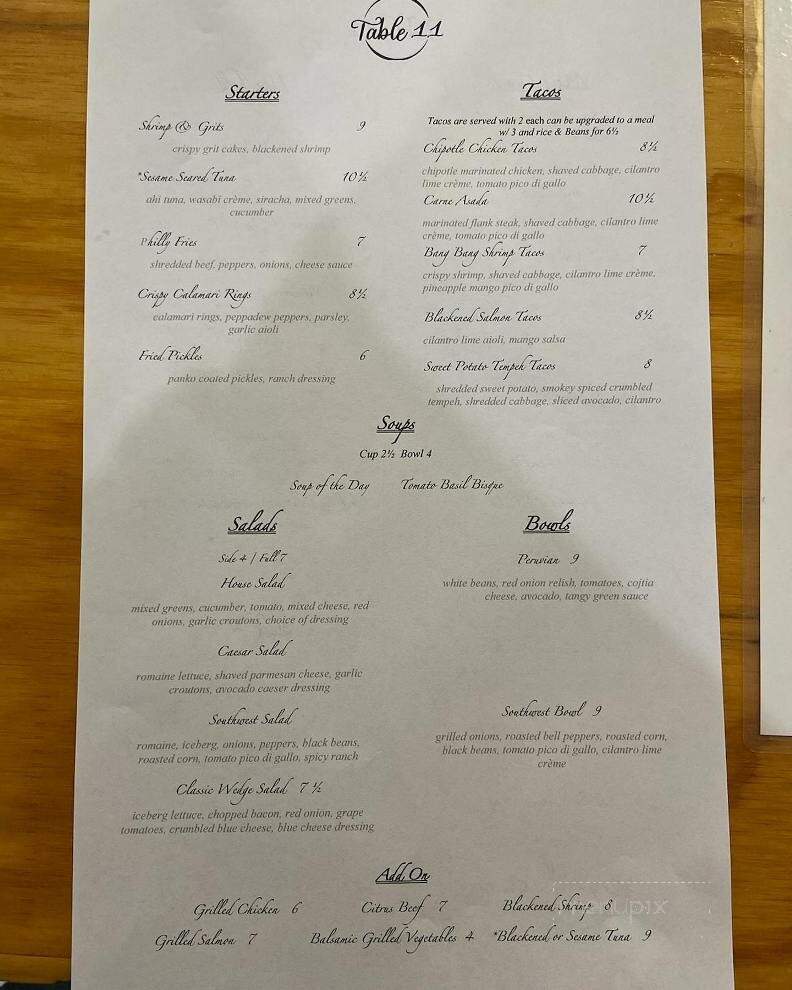 Table 11
Starters
Shrimp & Grits 9
crispy grit cakes, blackened shrimp
*Sesame Seared Tuna 10½
ahi tuna, wasabi crème, siracha, mixed greens,
cucumber
Philly Fries 7
shredded beef, peppers, onions, cheese sauce
Crispy Calamari Rings 8½
calamari rings, peppadew peppers, parsley,
garlic aioli
Fried Pickles 6
panko coated pickles, ranch dressing
Tacos
Tacos are served with 2 each can be upgraded to a meal
w/ 3 and rice & Beans for 6½
Chipotle Chicken Tacos 8½
chipotle marinated chicken, shaved cabbage, cilantro
lime crème, tomato pico di gallo
Carne Asada 10½
marinated flank steak, shaved cabbage, cilantro lime
crème, tomato pico di gallo
Bang Bang Shrimp Tacos 7
crispy shrimp, shaved cabbage, cilantro lime crème,
pineapple mango pico di gallo
Blackened Salmon Tacos 8½
cilantro lime aioli, mango salsa
Sweet Potato Tempeh Tacos 8
shredded sweet potato, smokey spiced crumbled
tempeh, shredded cabbage, sliced avocado, cilantro
Soups
Cup 2½ Bowl 4
Soup of the Day Tomato Basil Bisque
Salads
Side 4 | Full 7
House Salad
mixed greens, cucumber, tomato, mixed cheese, red
onions, garlic croutons, choice of dressing
Caesar Salad
romaine lettuce, shaved parmesan cheese, garlic
croutons, avocado caeser dressing
Southwest Salad
romaine, iceberg, onions, peppers, black beans,
roasted corn, tomato pico di gallo, spicy ranch
Classic Wedge Salad 7 ½
iceberg lettuce, chopped bacon, red onion, grape
tomatoes, crumbled blue cheese, blue cheese dressing
Bowls
Peruvian 9
white beans, red onion relish, tomatoes, cojtia
cheese, avocado, tangy green sauce
Southwest Bowl 9
grilled onions, roasted bell peppers, roasted corn,
black beans, tomato pico di gallo, cilantro lime
crème
Add On
Grilled Chicken 6 Citrus Beef 7 Blackened Shrimp 8
Grilled Salmon 7 Balsamic Grilled Vegetables 4 *Blackened or Sesame Tuna 9
menupix